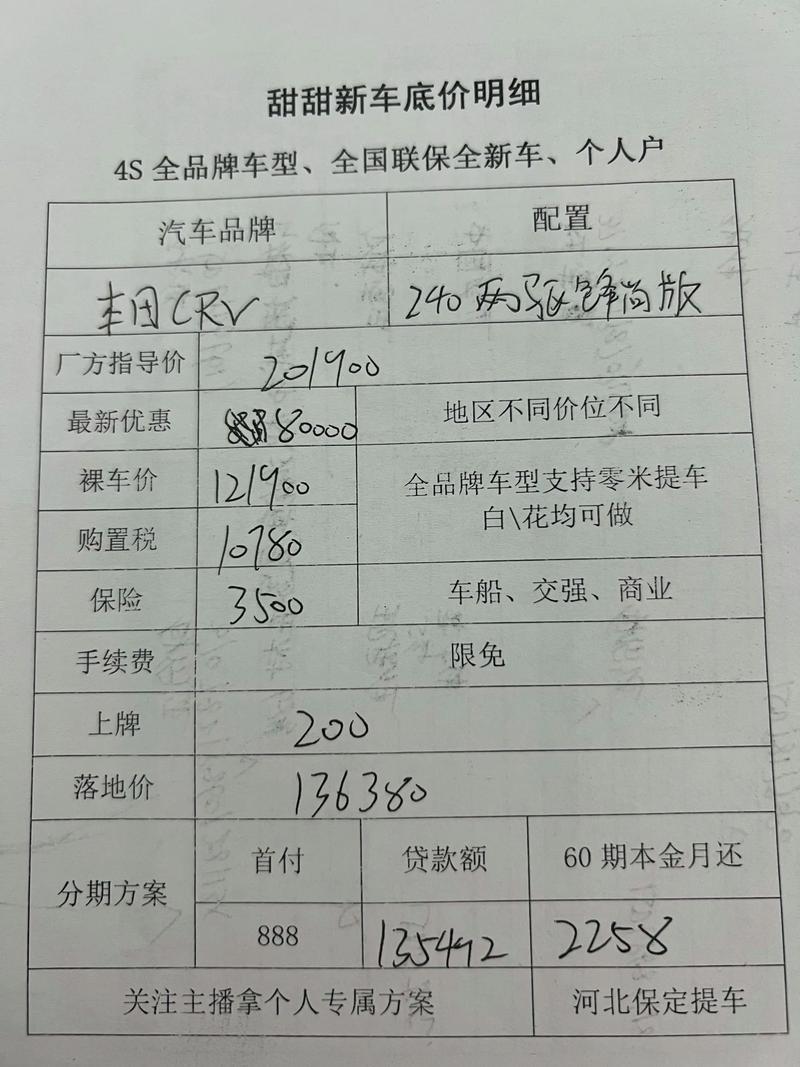 甜甜新车底价明细
4S 全品牌车型、全国联保全新车、个人户
汽车品牌 配置
丰田CRV 240两驱锋尚版
厂方指导价 201900
最新优惠 80000 地区不同价位不同
裸车价 121900 全品牌车型支持零米提车
白\花均可做
购置税 10780
保险 3500 车船、交强、商业
手续费 限免
上牌 200
落地价 136380
分期方案 首付 贷款额 60 期本金月还
888 135492 2258
关注主播拿个人专属方案 河北保定提车